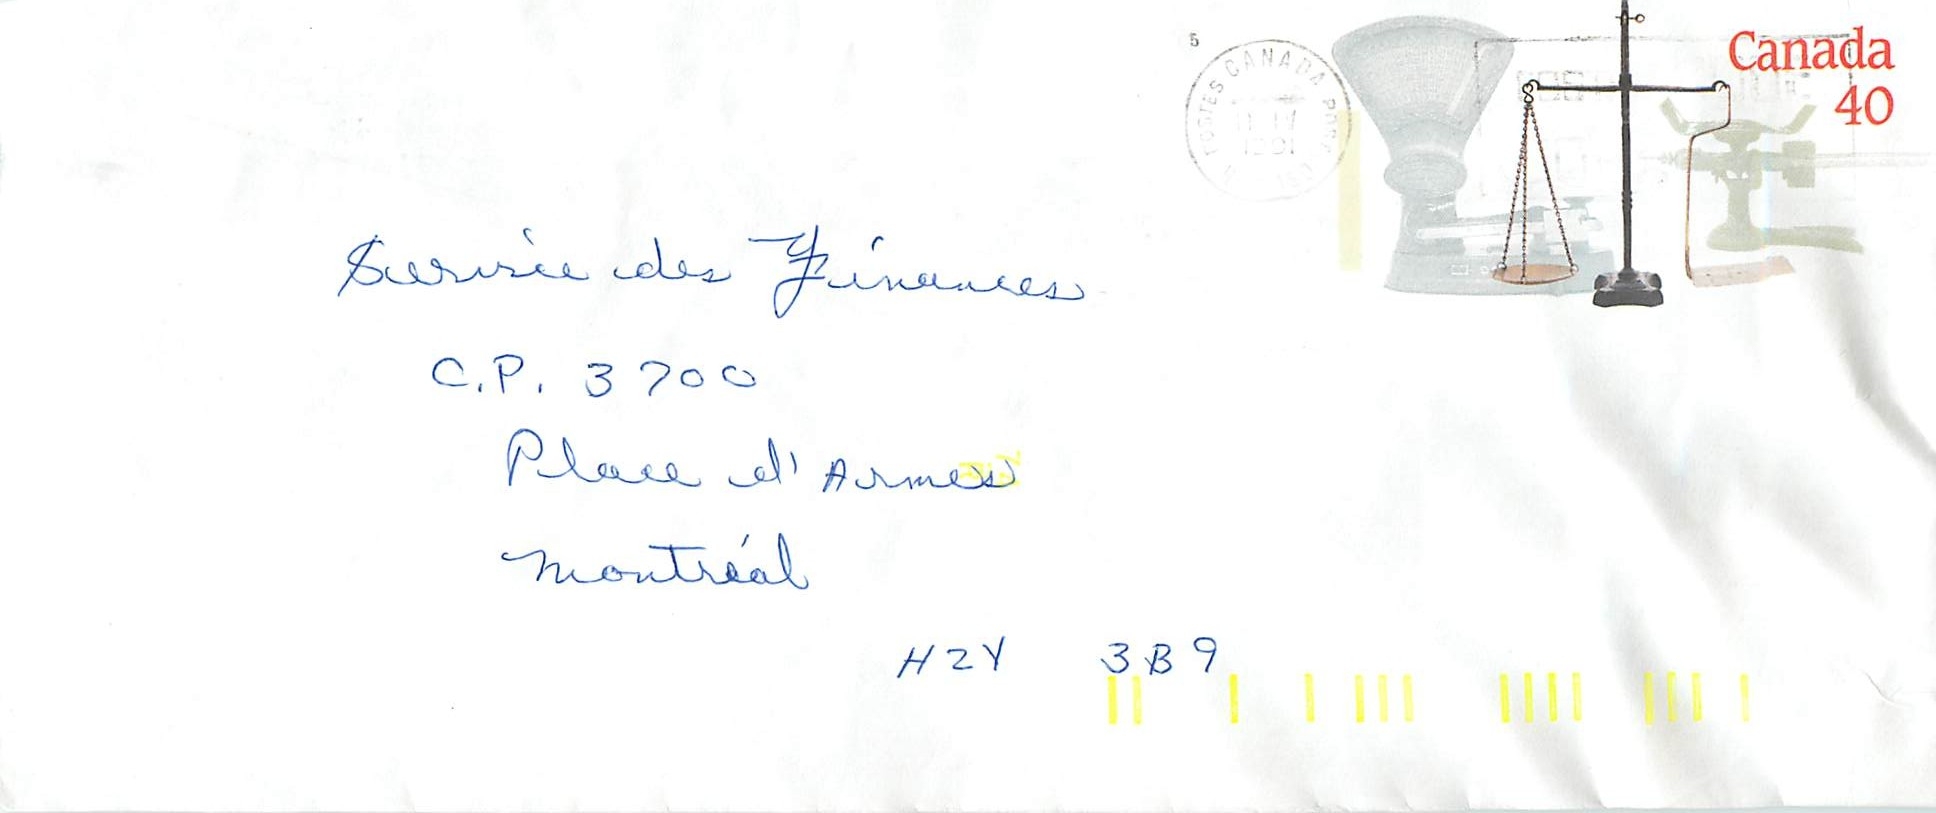 5
POSTES CANADA POST
1991
Canada
40
Service des Finances
C.P. 3700
Place d'Armes
Montréal
H2Y 3B9